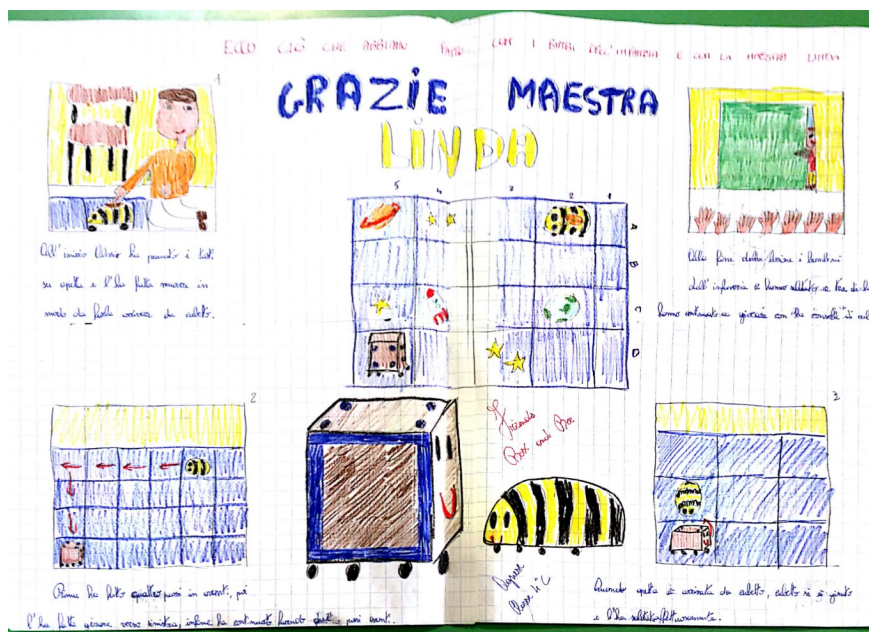 ECCO CIÒ CHE ABBIAMO FATTO CON I BIMBI DELL'INFANZIA E CON LA MAESTRA LINDA
GRAZIE MAESTRA
LINDA
1
All' inizio ha premuto i tasti
su apetta e l' ha fatta muovere in
modo da farla arrivare da cubetto.
5 4 3 2 1
A
B
C
D
Alla fine della lezione i bambini
dell' infanzia ci hanno salutato e
hanno continuato a giocare con
2
Prima ha fatto quattro passi in avanti, poi
l' ha fatta girare verso sinistra, infine ha continuato facendo passi avanti.
Friends
Box and Bee
Classe 4°C
3
Quando apetta è arrivata da cubetto, cubetto si è girato
e l' ha salutata affettuosamente.